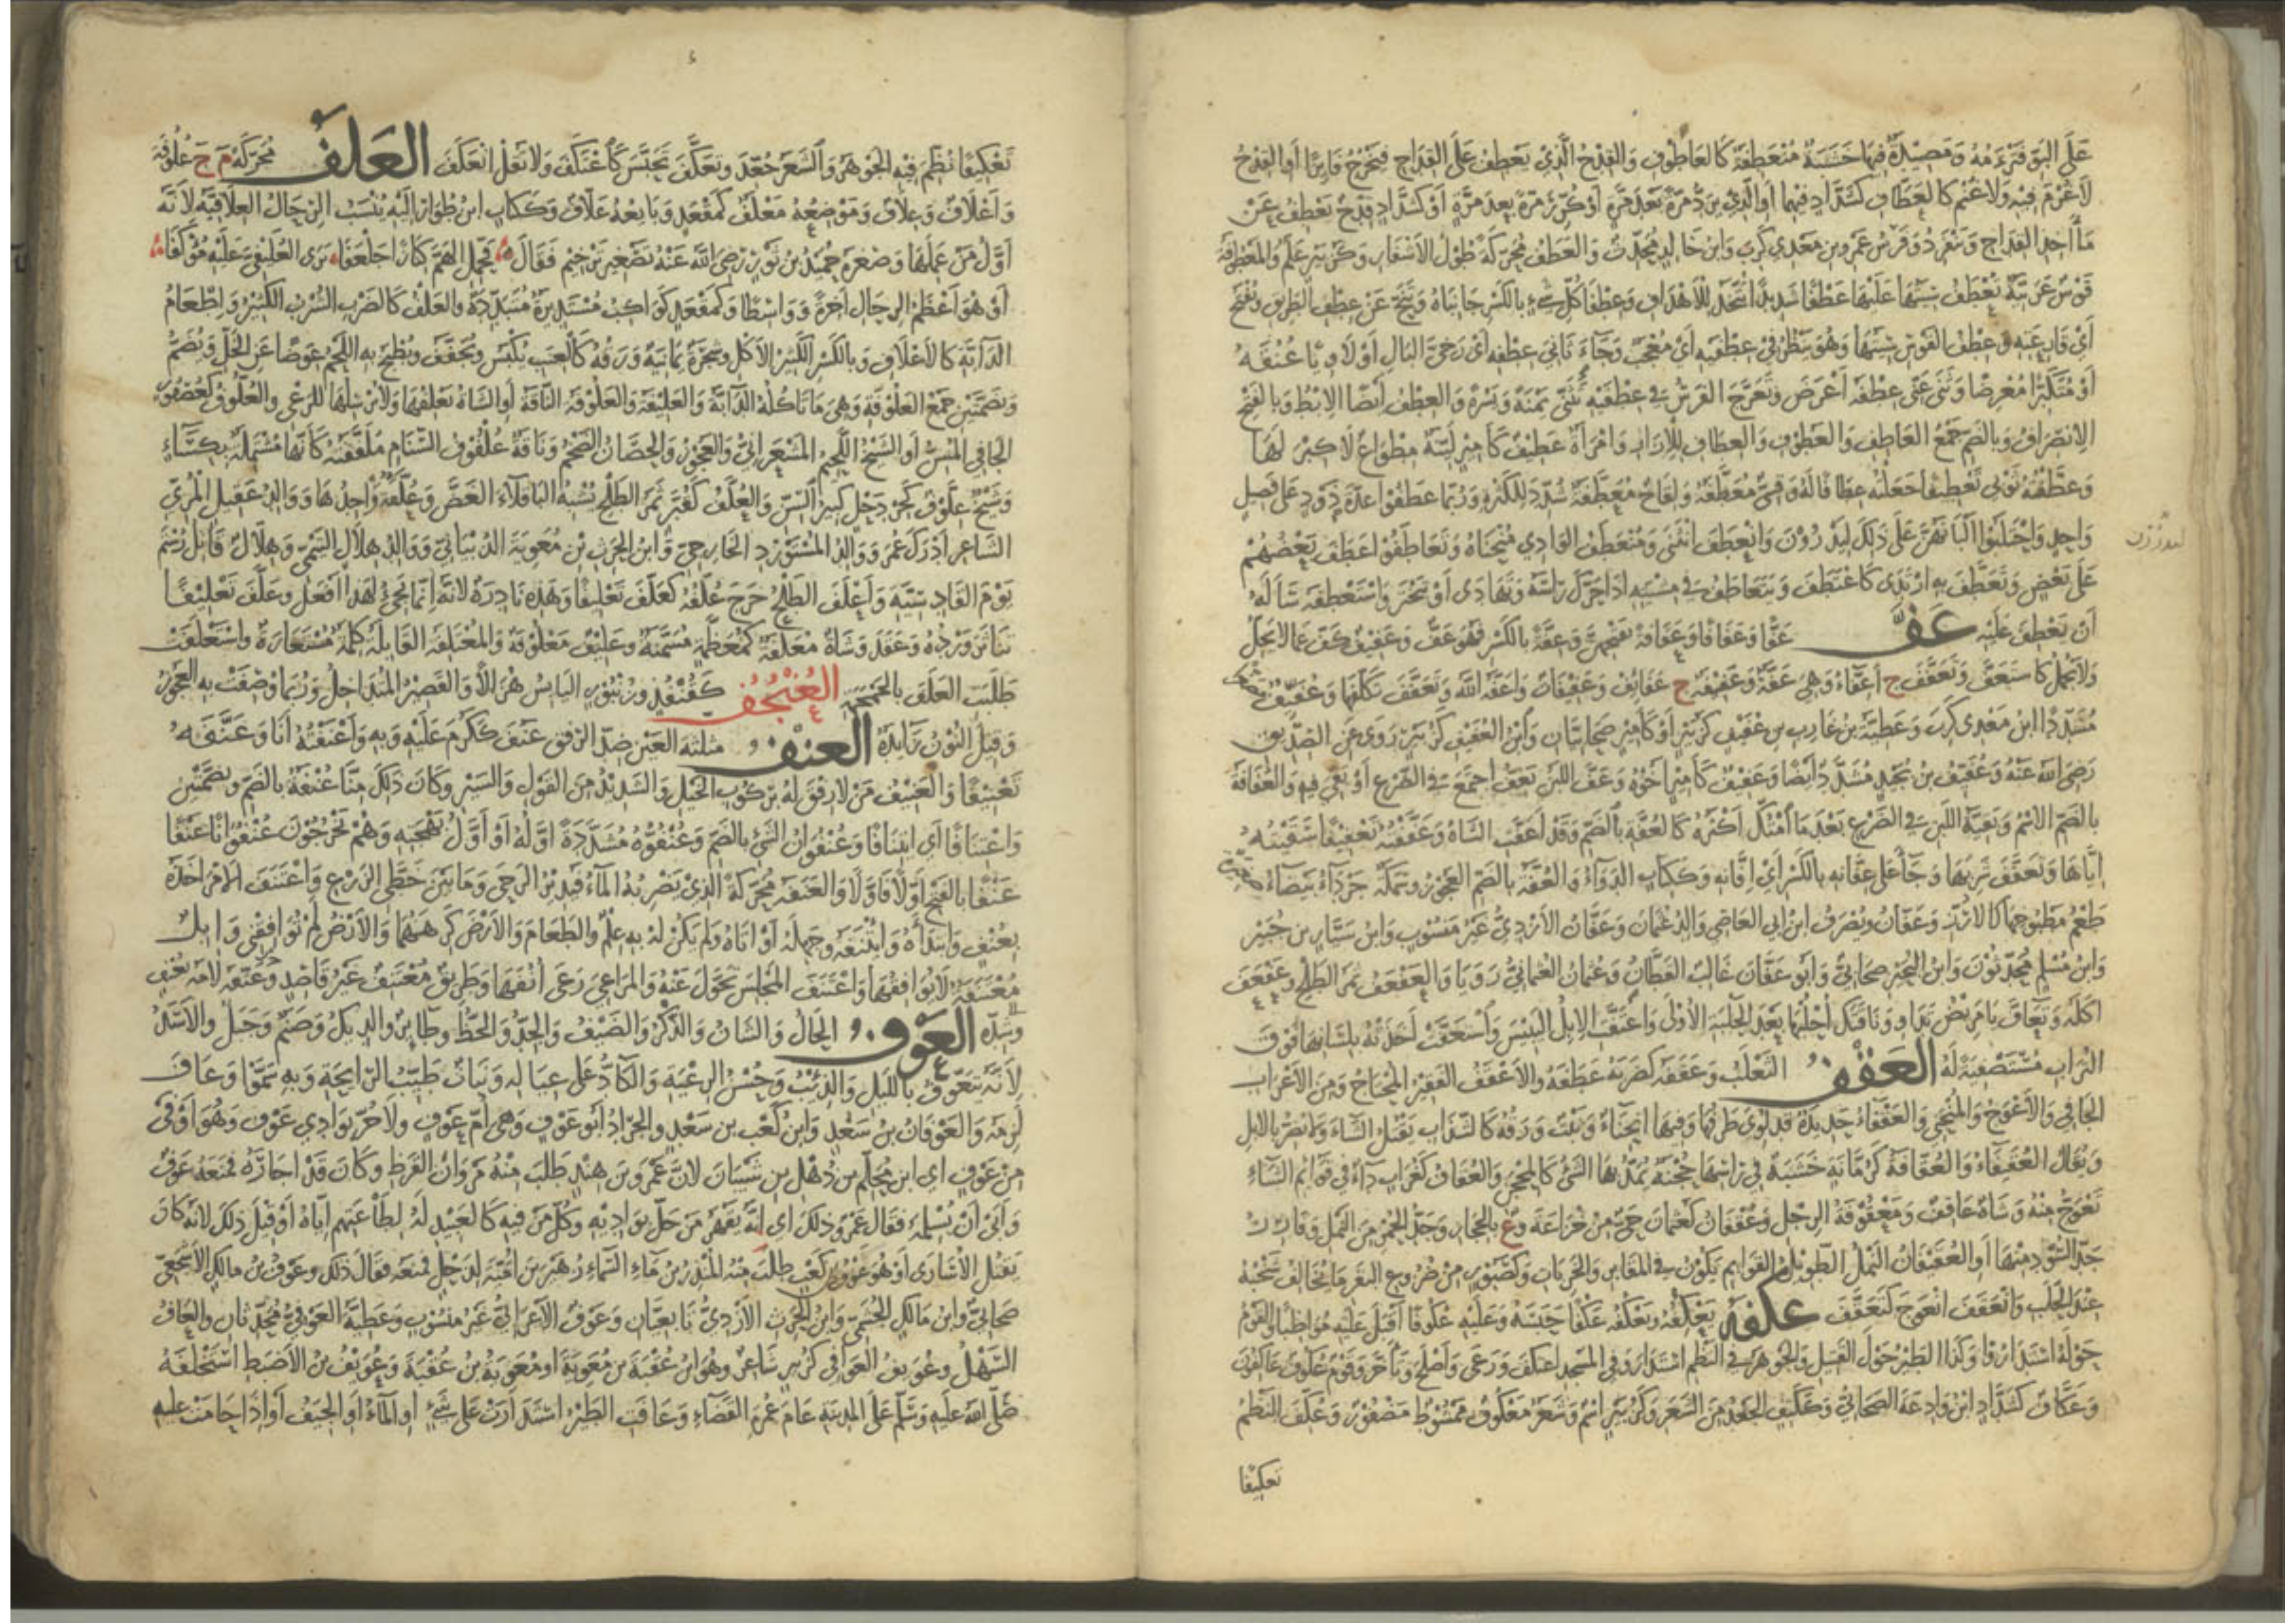 عَلَى البَوِّ فَتَرْءَمُهُ وَمَصِيدَةٌ فيها خَشَبَةٌ مُنْعَطِفَةٌ كالعاطوف والقِدْحُ الَّذي يَعْطِفُ عَلَى القِداحِ فيَخْرُجُ فائزًا أو القِدْحُ
لا غُرْمَ فيه ولا غُنْمَ كالعَطَّافِ كشَدَّادٍ فيهما أو الَّذي يُرَدُّ مَرَّةً بَعْدَ مَرَّةٍ أو كُرِّرَ مَرَّةً بعد مَرَّةٍ أو كشَدَّادٍ قِدْحٌ يَعْطِفُ عن
مأخذ القداح وينفرد وفَرَسُ عَمْرِو بن مَعْدِي كَرِبَ وابنُ خالدٍ مُحَدِّثٌ والعَطَفُ مُحَرَّكَةً طُولُ الأشفارِ وكزُبَيْرٍ عَلَمٌ والمَعْطُوفَةُ
قَوْسٌ عَرَبِيَّةٌ تُعْطَفُ سِيَتُها عَلَيْها عَطْفًا شَديدًا تُتَّخَذُ للأهدافِ وعِطْفَا كلِّ شَيْءٍ بالكسر جانباهُ وتَنَحَّ عن عِطْفِ الطَّريقِ ويُفْتَحُ
أي قارِعَتِهِ وعِطْفُ القَوْسِ سِيَتُها وهو يَنْظُرُ في عِطْفَيْهِ أي مُعْجَبٌ وجاءَ ثانِيَ عِطْفِهِ أي رَخِيَّ البالِ أو لاوِيًا عُنُقَهُ
أو مُتَكَبِّرًا مُعْرِضًا وثَنَى عَنِّي عِطْفَهُ أَعْرَضَ وتَعَوَّجَ الفَرَسُ في عِطْفَيْهِ تَثَنَّى يَمْنَةً ويَسْرَةً والعِطْفُ أيضًا الإبْطُ وبالفتح
الانصرافُ وبالضم جَمْعُ العاطِفِ والعَطوفِ والعِطافِ للإزارِ وامرأةٌ عَطيفٌ كأميرٍ لَيِّنَةٌ مِطْواعٌ لا كِبْرَ لَها
وعَطَّفْتُهُ ثَوْبي تَعْطيفًا جَعَلْتُهُ عِطافًا لَهُ وقِسِيٌّ مُعَطَّفَةٌ ولِقاحٌ مُعَطَّفَةٌ شُدِّدَ للكَثْرَةِ ورُبَّما عَطَفُوا عِدَّةَ ذَوْدٍ عَلَى فَصيلٍ
واحِدٍ واحْتَلَبُوا أَلْبانَهُنَّ عَلَى ذلك لِيَدْرُرْنَ وانْعَطَفَ انْثَنَى ومُنْعَطَفُ الوادي مُنْحَناهُ وتَعاطَفُوا عَطَفَ بَعْضُهُمْ
عَلَى بَعْضٍ وتَعَطَّفَ به ارْتَدَى كاعْتَطَفَ ويَتَعاطَفُ في مِشْيَتِهِ إذا حَرَّكَ رَأْسَهُ وتَهادَى أو تَبَخْتَرَ واسْتَعْطَفَهُ سَأَلَهُ
أن يَعْطِفَ عَلَيْهِ عَفَّ عَفًّا وعَفافًا وعَفافَةً بفتحهن وعِفَّةً بالكسر فهو عَفٌّ وعَفيفٌ كَفَّ عما لا يَحِلُّ
ولا يَجْمُلُ كاسْتَعَفَّ وتَعَفَّفَ ج أَعِفَّاءُ وهي عَفَّةٌ وعَفيفَةٌ ج عَفائِفُ وعَفيفاتٌ وأَعَفَّهُ اللّٰهُ وتَعَفَّفَ تَكَلَّفَها وعُفَيِّفٌ
مُشَدَّدًا ابنُ مَعْدِي كَرِبَ وعَطِيَّةُ بنُ عازِبِ بنِ عُفَيْفٍ كزُبَيْرٍ أو كأميرٍ صَحابِيَّانِ وابنُ العُفَيْفِ كزُبَيْرٍ رَوَى عن الصِّدِّيقِ
رَضِيَ اللّٰهُ عَنْهُ وعُفَيِّفُ بنُ بُجَيْدٍ مُشَدَّدًا أيضًا وعَفيفٌ كأميرٍ أخوهُ وعَفَّ اللَّبَنُ يَعِفُّ اجْتَمَعَ في الضَّرْعِ أو بَقِيَ فيهِ والعُفافَةُ
بالضم الاسْمُ وبَقِيَّةُ اللَّبَنِ في الضَّرْعِ بَعْدَ ما امْتُكَّ أَكْثَرُهُ كالعُفَّةِ بالضم وقد أَعَفَّتِ الشاةُ وعَفَّفْتُهُ تَعْفيفًا سَقَيْتُهُ
إيَّاها وتَعَفَّفَ شَرِبَها وجاءَ عَلَى عِفَّانِهِ بالكسر أي إفَّانِهِ وككِتابٍ الدَّواءُ والعُفَّةُ بالضم العَجُوزُ وسَمَكَةٌ جَرْداءُ بَيْضاءُ
طَعْمُ مَطْبُوخِها كالأَرُزِّ وعَفَّانُ ويُصْرَفُ ابنُ أبي العاصي والدُ عُثْمانَ وعَفَّانُ الأَزْدِيُّ غَيْرُ مَنْسُوبٍ وابنُ سَيَّارٍ بن جُبَيْرٍ
وابنُ مُسْلِمٍ مُحَدِّثُونَ وابنُ البُجَيْرِ صَحابِيٌّ وأَبُو عَفَّانَ غالِبٌ القَطَّانُ وعُثْمانُ العُثْمانِيُّ رَوَيا والعَفْعَفُ ثَمَرُ الطَّلْحِ وعَفْعَفَ
أَكَلَهُ وتَعافَّ يا مَريضُ تَداوَ وناقَتَكَ احْلُبْها بَعْدَ الحَلْبَةِ الأُولَى واعْتَفَّتِ الإبِلُ اليَبيسَ واسْتَعَفَّتْ أَخَذَتْهُ بلِسانِها فَوْقَ
التُّرابِ مُسْتَصْفِيَةً لَهُ العَقْفُ الثَّعْلَبُ وعَقَفَهُ كضَرَبَهُ عَطَفَهُ والأَعْقَفُ الفَقيرُ المُحْتاجُ ومِنَ الأَعْرابِ
الجافي والأَعْوَجُ والمُنْحَنِي والعَقْفاءُ حَديدَةٌ قد لُوِيَ طَرَفُها وفيها انْحِناءٌ ونَبْتٌ وَرَقُهُ كالسَّذابِ يَقْتُلُ الشاءَ ولا يَضُرُّ بالإبِلِ
ويُقالُ العُقَيْفاءُ والعُقَّافَةُ كرُمَّانَةٍ خَشَبَةٌ في رَأْسِها حُجْنَةٌ يُمَدُّ بها الشَّيْءُ كالمِحْجَنِ والعُقافُ كغُرابٍ داءٌ في قَوائِمِ الشاءِ
تَعْوَجُّ مِنْهُ وشاةٌ عاقِفٌ ومَعْقُوفَةُ الرِّجْلِ وعُقْفانُ كعُثْمانَ حَيٌّ مِنْ خُزاعَةَ وع بالحِجازِ وجَدُّ الحُمْرِ مِنَ النَّمْلِ وفازِرٌ
جَدُّ السُّودِ مِنْها أو العُقَيْفانُ النَّمْلُ الطَّويلُ القَوائِمِ يَكُونُ في المَقابِرِ والخَرِباتِ وكصَبُورٍ مِنْ ضُرُوعِ البَقَرِ ما يُخالِفُ شَخْبُهُ
عِنْدَ الحَلَبِ وانْعَقَفَ انْعَوَجَ كتَعَقَّفَ عَكَفَهُ يَعْكُفُهُ ويَعْكِفُهُ عَكْفًا حَبَسَهُ وعَلَيْهِ عُكُوفًا أَقْبَلَ عَلَيْهِ مُواظِبًا والقَوْمُ
حَوْلَهُ اسْتَدارُوا وكذا الطَّيْرُ حَوْلَ القَتيلِ والجَوْهَرُ في النَّظْمِ اسْتَدارَ وفي المَسْجِدِ اعْتَكَفَ ورَعَى وأَصْلَحَ وتَأَخَّرَ وقَوْمٌ عُكُوفٌ عاكِفُونَ
وعَكَّافٌ كشَدَّادٍ ابنُ وَداعَةَ الصَّحابِيُّ وككَتِفٍ الجَعْدُ مِنَ الشَّعَرِ وكزُبَيْرٍ اسْمٌ وشَعَرٌ مَعْكُوفٌ مَمْشُوطٌ مَضْفُورٌ وعُكِّفَ النَّظْمُ
تعكيفًا
لِيَدْرُرْنَ
تَعْكيفًا نُظِمَ فيهِ الجَوْهَرُ والشَّعَرُ جُعِّدَ وتَعَكَّفَ تَحَبَّسَ كاعْتَكَفَ ولا تَقُلْ انْعَكَفَ العَلَفُ مُحَرَّكَةً م ج عُلُوفَةٌ
وأَعْلافٌ وعِلافٌ ومَوْضِعُهُ مَعْلَفٌ كمَقْعَدٍ وبائِعُهُ عَلَّافٌ وككِتابٍ ابنُ طُوارٍ إلَيْهِ يُنْسَبُ الرِّحالُ العِلافِيَّةُ لأَنَّهُ
أَوَّلُ مَنْ عَمِلَها وصَغَّرَهُ حُمَيْدُ بنُ ثَوْرٍ رَضِيَ اللّٰهُ عَنْهُ تَصْغيرَ تَرْخيمٍ فقالَ فحَمِّلِ الهَمَّ كِنازًا جَلْعَفَا تَرَى العُلَيْفِيَّ عَلَيْهِ مُؤْكَفَا
أو هو أَعْظَمُ الرِّحالِ آخِرَةً وواسِطًا وكمَقْعَدٍ كَواكِبُ مُسْتَديرَةٌ مُتَبَدِّدَةٌ والعَلْفُ كالضَّرْبِ الشُّرْبُ الكَثيرُ وإطْعامُ
الدَّابَّةِ كالإعْلافِ وبالكسر الكَثيرُ الأَكْلِ وشَجَرَةٌ يَمانِيَةٌ وَرَقُهُ كالعِنَبِ يُكْبَسُ ويُجَفَّفُ ويُطْبَخُ بِهِ اللَّحْمُ عِوَضًا عَنِ الخَلِّ ويُضَمُّ
وبضَمَّتَيْنِ جَمْعُ العَلُوفَةِ وهي ما تَأْكُلُهُ الدَّابَّةُ والعَليفَةُ والعَلُوفَةُ النَّاقَةُ أو الشاةُ تَعْلِفُها ولا تُرْسِلُها للرَّعْيِ والعُلْفُوفُ كعُصْفُورٍ
الجافي المُسِنُّ أو الشَّيْخُ اللَّحيمُ المُشْعَرانِيُّ والعَجُوزُ والحِصانُ الضَّخْمُ وناقَةٌ عُلْفُوفُ السَّنامِ مُلَفَّفَتُهُ كأَنَّها مُشْتَمِلَةٌ بكِساءٍ
وشَيْخٌ عِلَّوْفٌ كجِرْدَحْلٍ كَبيرُ السِّنِّ والعُلَّفُ كقُبَّرٍ ثَمَرُ الطَّلْحِ يُشْبِهُ الباقِلَّاءَ الغَضَّ وعُلَّفَةٌ واحِدُها ووالِدُ عَقيلٍ المُرِّيِّ
الشاعِرِ أَدْرَكَ عُمَرَ ووالِدُ المُسْتَوْرِدِ الخارِجِيِّ وابنُ الحَرِثِ بنِ مُعَوِيَةَ الذُّبْيانِيُّ ووالِدُ هِلالٍ التَّيْمِيِّ وهِلالٌ قاتِلُ رُسْتُمَ
يَوْمَ القادِسِيَّةِ وأَعْلَفَ الطَّلْحُ خَرَجَ عُلَّفُهُ كعَلَّفَ تَعْليفًا وهَذِهِ نادِرَةٌ لأَنَّهُ إنَّما يَجِيءُ لِهَذا أَفْعَلَ وعَلَّفَ تَعْليفًا
تَناثَرَ وَرْدُهُ وعَقَدَ وشاةٌ مُعَلَّفَةٌ كمُعَظَّمَةٍ مُسَمَّنَةٌ وعَليفٌ مَعْلُوفَةٌ والمُعْتَلِفَةُ القابِلَةُ كَلِمَةٌ مُسْتَعارَةٌ واسْتَعْلَفَتْ
طَلَبَتِ العَلَفَ بالحَمْحَمَةِ العُنْجُفُ كقُنْفُذٍ وزُنْبُورٍ اليابِسُ هُزالًا والقَصيرُ المُتَداخِلُ ورُبَّما وُصِفَتْ بِهِ العَجُوزُ
وقيلَ النُّونُ زائِدَةٌ العُنْفُ مُثَلَّثَةَ العَيْنِ ضِدُّ الرِّفْقِ عَنُفَ ككَرُمَ عَلَيْهِ وبِهِ وأَعْنَفْتُهُ أَنا وعَنَّفْتُهُ
تَعْنيفًا والعَنيفُ مَنْ لا رِفْقَ لَهُ برُكُوبِ الخَيْلِ والشَّديدُ مِنَ القَوْلِ والسَّيْرِ وكانَ ذَلِكَ مِنَّا عُنْفَةً بالضم وبضَمَّتَيْنِ
واعْتِنافًا أي ائْتِنافًا وعُنْفُوانُ الشَّيْءِ بالضم وعُنْفُوُّهُ مُشَدَّدَةً أَوَّلُهُ أو أَوَّلُ بَهْجَتِهِ وهُمْ يَخْرُجُونَ عُنْفُوانًا عَنْفًا
عَنْفًا بالفتح أَوَّلًا فأَوَّلًا والعَنَفَةُ مُحَرَّكَةً الَّذي يَضْرِبُهُ الماءُ فيُديرُ الرَّحَى وما بَيْنَ خَطَّيِ الزَّرْعِ واعْتَنَفَ الأَمْرَ أَخَذَهُ
بعُنْفٍ وابْتَدَأَهُ وائْتَنَفَهُ وجَهِلَهُ أو أَتاهُ ولَمْ يَكُنْ لَهُ بِهِ عِلْمٌ والطَّعامَ والأَرْضَ كَرِهَهُما والأَرْضُ لَمْ تُوافِقْني وإبِلٌ
مُعْتَنِفَةٌ لا يُوافِقُها واعْتَنَفَ المَجْلِسَ تَحَوَّلَ عَنْهُ والمَراعِيَ رَعَى أُنُفَها وطَريقٌ مُعْتَنِفٌ غَيْرُ قاصِدٍ وعَنَّفَهُ لامَهُ بعُنْفٍ
وشِدَّةٍ العَوْفُ الحالُ والشَّانُ والذَّكَرُ والضَّيْفُ والجَدُّ والحَظُّ وطائِرٌ والدِّيكُ وصَنَمٌ وجَبَلٌ والأَسَدُ
لأَنَّهُ يَتَعَوَّفُ باللَّيْلِ والذِّئْبُ وحُسْنُ الرِّعْيَةِ والكادُّ عَلَى عِيالِهِ ونَباتٌ طَيِّبُ الرَّائِحَةِ وبِهِ سَمَّوْا وعافَ
لَزِمَهُ والعَوْفانُ بنُ سَعْدٍ وابنُ كَعْبِ بنِ سَعْدٍ والجَرادُ أَبُو عَوْفٍ وهي أُمُّ عَوْفٍ ولا حُرَّ بوادي عَوْفٍ وهو أَوْفَى
مِنْ عَوْفٍ أي ابنِ مُحَلِّمِ بنِ ذُهْلِ بنِ شَيْبانَ لأَنَّ عَمْرَو بنَ هِنْدٍ طَلَبَ مِنْهُ مَرْوانَ القَرَظِ وكانَ قَدْ أَجارَهُ فمَنَعَهُ عَوْفٌ
وأَبَى أَنْ يُسْلِمَهُ فقالَ عَمْرٌو ذَلِكَ أي إنَّهُ يَقْهَرُ مَنْ حَلَّ بواديهِ وكُلُّ مَنْ فيهِ كالعَبيدِ لَهُ لِطاعَتِهِمْ إيَّاهُ أو قيلَ ذَلِكَ لأَنَّهُ كانَ
يَقْتُلُ الأُسارَى أو هو عَوْفُ بنُ كَعْبٍ طَلَبَ مِنْهُ المُنْذِرُ بنُ ماءِ السَّماءِ زُهَيْرَ بنَ أُمَيَّةَ لِذَحْلٍ فمَنَعَهُ فقالَ ذَلِكَ وعَوْفُ بنُ مالِكٍ الأَشْجَعِيُّ
صَحابِيٌّ وابنُ مالِكٍ الجُشَمِيُّ وابنُ الحَرِثِ الأَزْدِيُّ تابِعِيَّانِ وعَوْفٌ الأَعْرابِيُّ غَيْرُ مَنْسُوبٍ وعَطِيَّةُ العَوْفِيُّ مُحَدِّثانِ والعافُ
السَّهْلُ وعُوَيْفُ القَوافي كزُبَيْرٍ شاعِرٌ وهو ابنُ عُقْبَةَ بنِ مُعَوِيَةَ أو مُعَوِيَةُ بنُ عُقْبَةَ وعُوَيْفُ بنُ الأَضْبَطِ اسْتَخْلَفَهُ
صَلَّى اللّٰهُ عَلَيْهِ وسَلَّمَ عَلَى المَدينَةِ عامَ عُمْرَةِ القَضاءِ وعافَتِ الطَّيْرُ اسْتَدارَتْ عَلَى شَيْءٍ أو الماءِ أو الجِيَفِ أو إذا حامَتْ عَلَيْهِ